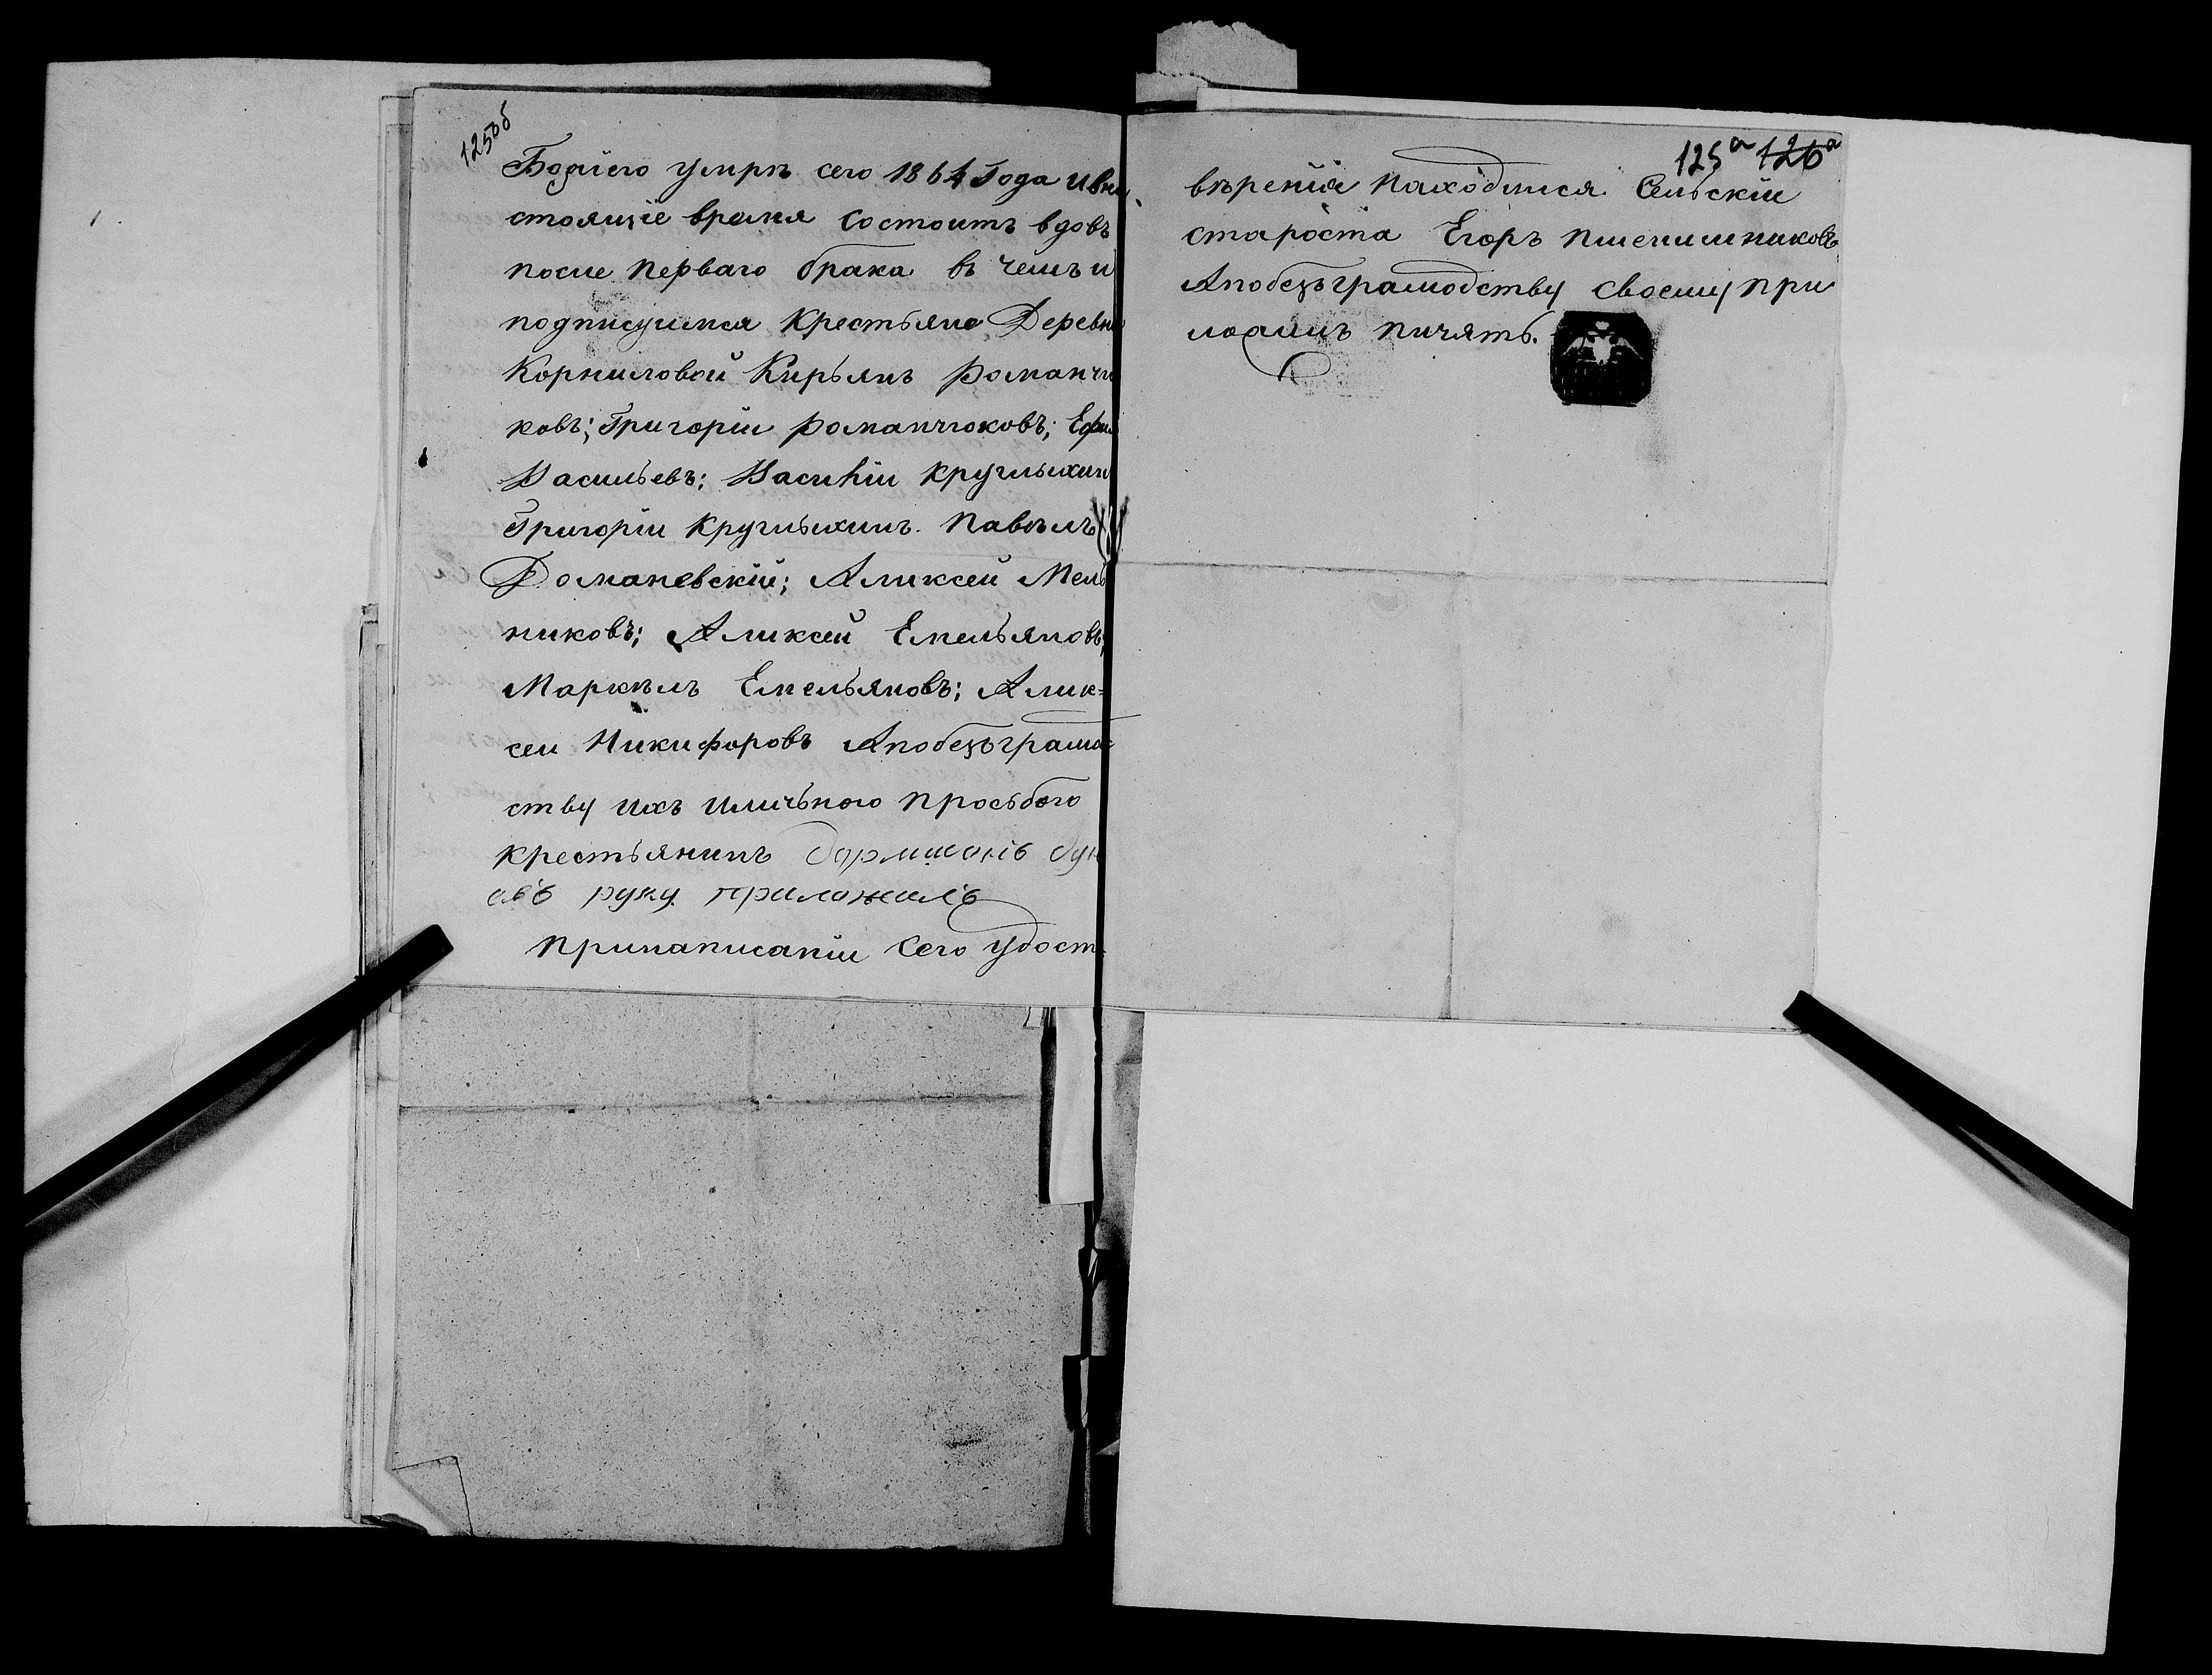 125об
Божіею умръ сего 1864 Года ивна
стоящіе время состоитъ вдовъ
после перваго брака въ чемъ и
подписуимся крестьяне Деревни
Корниловой Кирьянъ Романчи
ковъ; Григоріи Романчюковъ; Ефим
Васильевъ; Василіи Круглыхин
Григоріи Круглыхинъ. Павѣлъ
Романевскій; Аликсеи Мель
никовъ; Аликсеи Емельяновъ;
Маркѣлъ Емельяновъ; Алик=
сеи Никифоровъ Апобезъграмот
ству ихъ иличьною просьбою
крестьянинъ
овъ руку приложилъ
принаписаніи Сего удост
125а 126а
вѣренія находился Сельскіи
староста Егоръ пшенишниковъ
Апобезъграмодству своему при
ложилъ пичять.